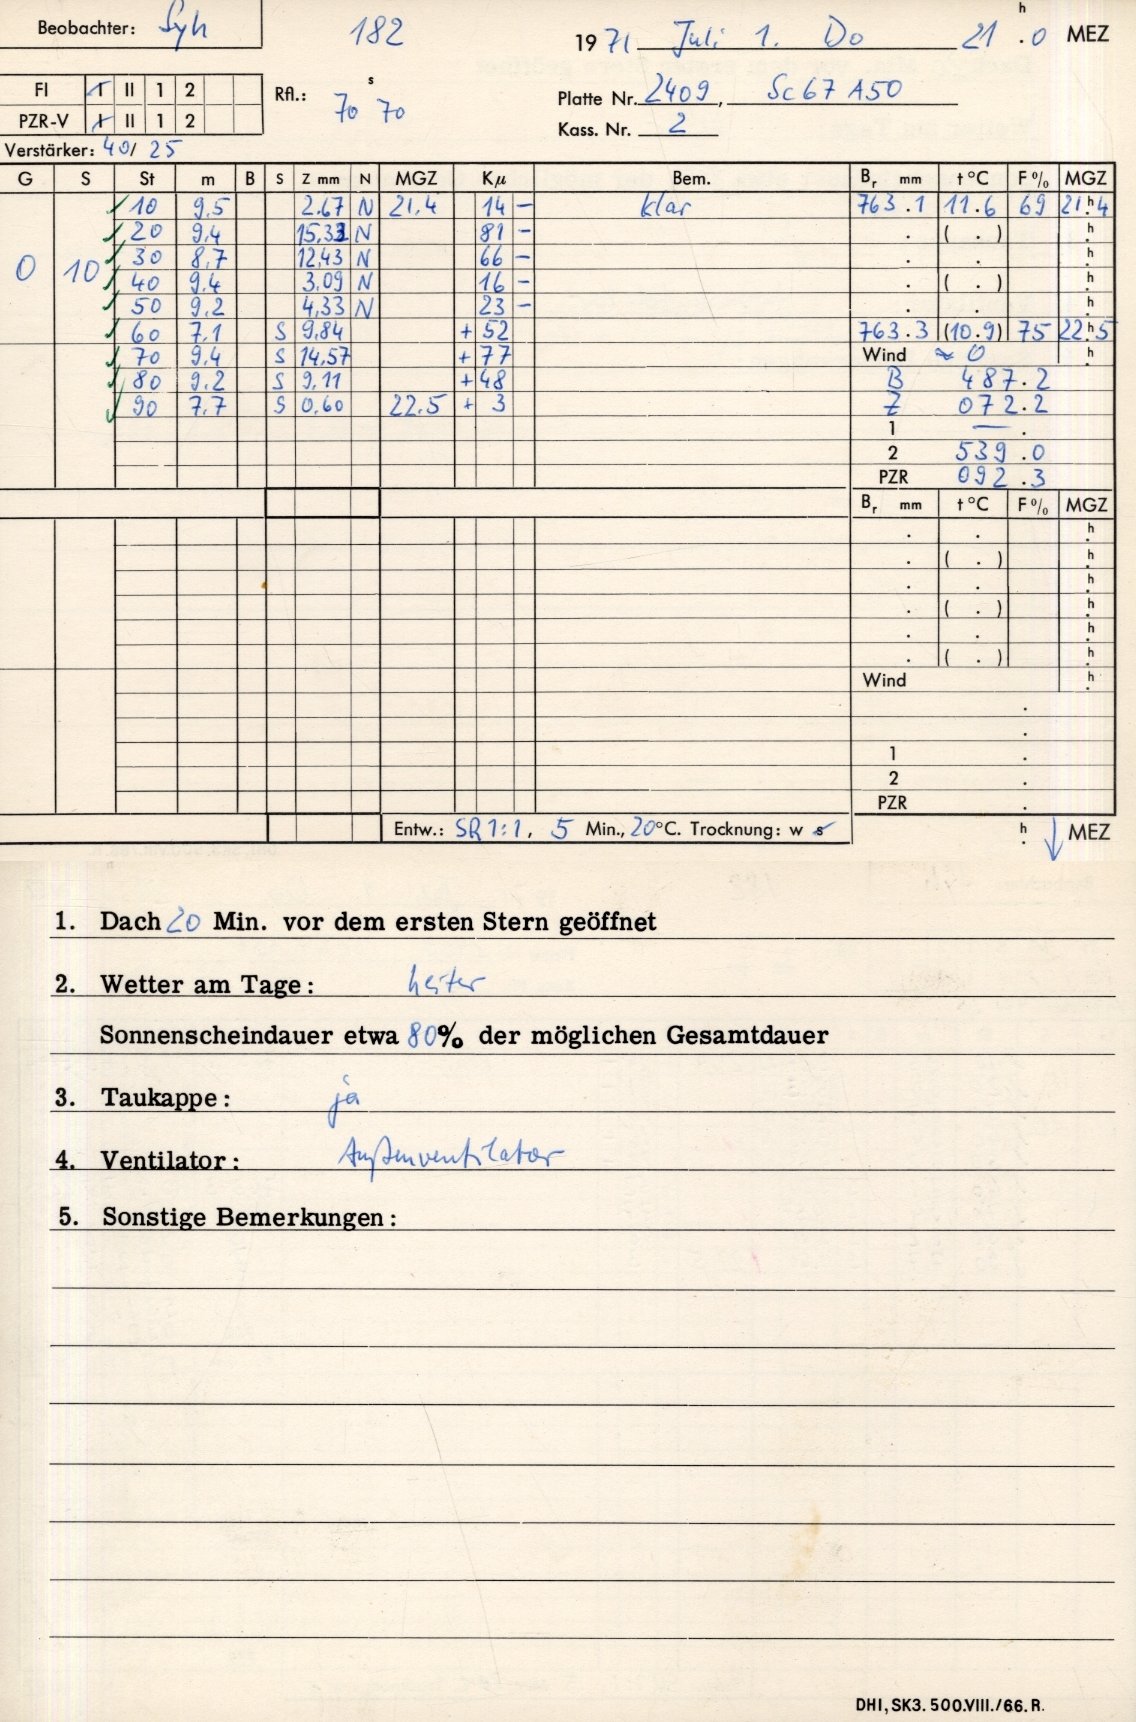 Beobachter: Syh 182 1971 Juli 1. Do 21 h . 0 MEZ
FI I II 1 2 Rfl.: 70 s 70 Platte Nr. 2409, Sc67 A50
PZR-V I II 1 2 Kass. Nr. 2
Verstärker: 40/ 25
G S St m B S Z mm N MGZ Kμ Bem. Br mm t °C F % MGZ
✓ 10 9,5 2.67 N 21,4 14 − klar 763 . 1 11.6 69 21 h 4
✓ 20 9,4 15,33 N 81 − . ( . ) h .
0 10 ✓ 30 8,7 12,43 N 66 − . . h .
✓ 40 9,4 3,09 N 16 − . ( . ) h .
✓ 50 9,2 4,33 N 23 − . . h .
✓ 60 7,1 S 9,84 + 52 763.3 (10.9) 75 22 h 5
✓ 70 9,4 S 14,57 + 77 Wind ≈ 0 h .
✓ 80 9,2 S 9,11 + 48 B 487.2
✓ 90 7,7 S 0,60 22.5 + 3 Z 072.2
1 — .
2 539 .0
PZR 092 .3
Br mm t °C F % MGZ
. . h .
. ( . ) h .
. . h .
. ( . ) h .
. . h .
. ( . ) h .
Wind h .
.
.
1 .
2 .
PZR .
Entw.: SR 1:1, 5 Min., 20°C. Trocknung: w s h . ↓ MEZ
1. Dach 20 Min. vor dem ersten Stern geöffnet
2. Wetter am Tage: heiter
Sonnenscheindauer etwa 80% der möglichen Gesamtdauer
3. Taukappe: ja
4. Ventilator: Außenventilator
5. Sonstige Bemerkungen:
DHI, SK3. 500.VIII./66. R.